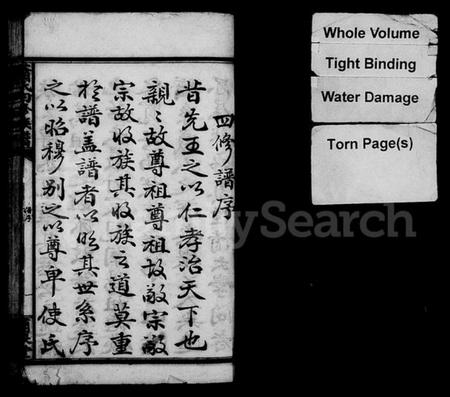 四修譜序
昔先王之以仁孝治天下也
親〻故尊祖尊祖故敬宗敬
宗故收族其收族之道莫重
於譜蓋譜者以昭其世系序
之以昭穆別之以尊卑使氏
Whole Volume
Tight Binding
Water Damage
Torn Page(s)
MySearch